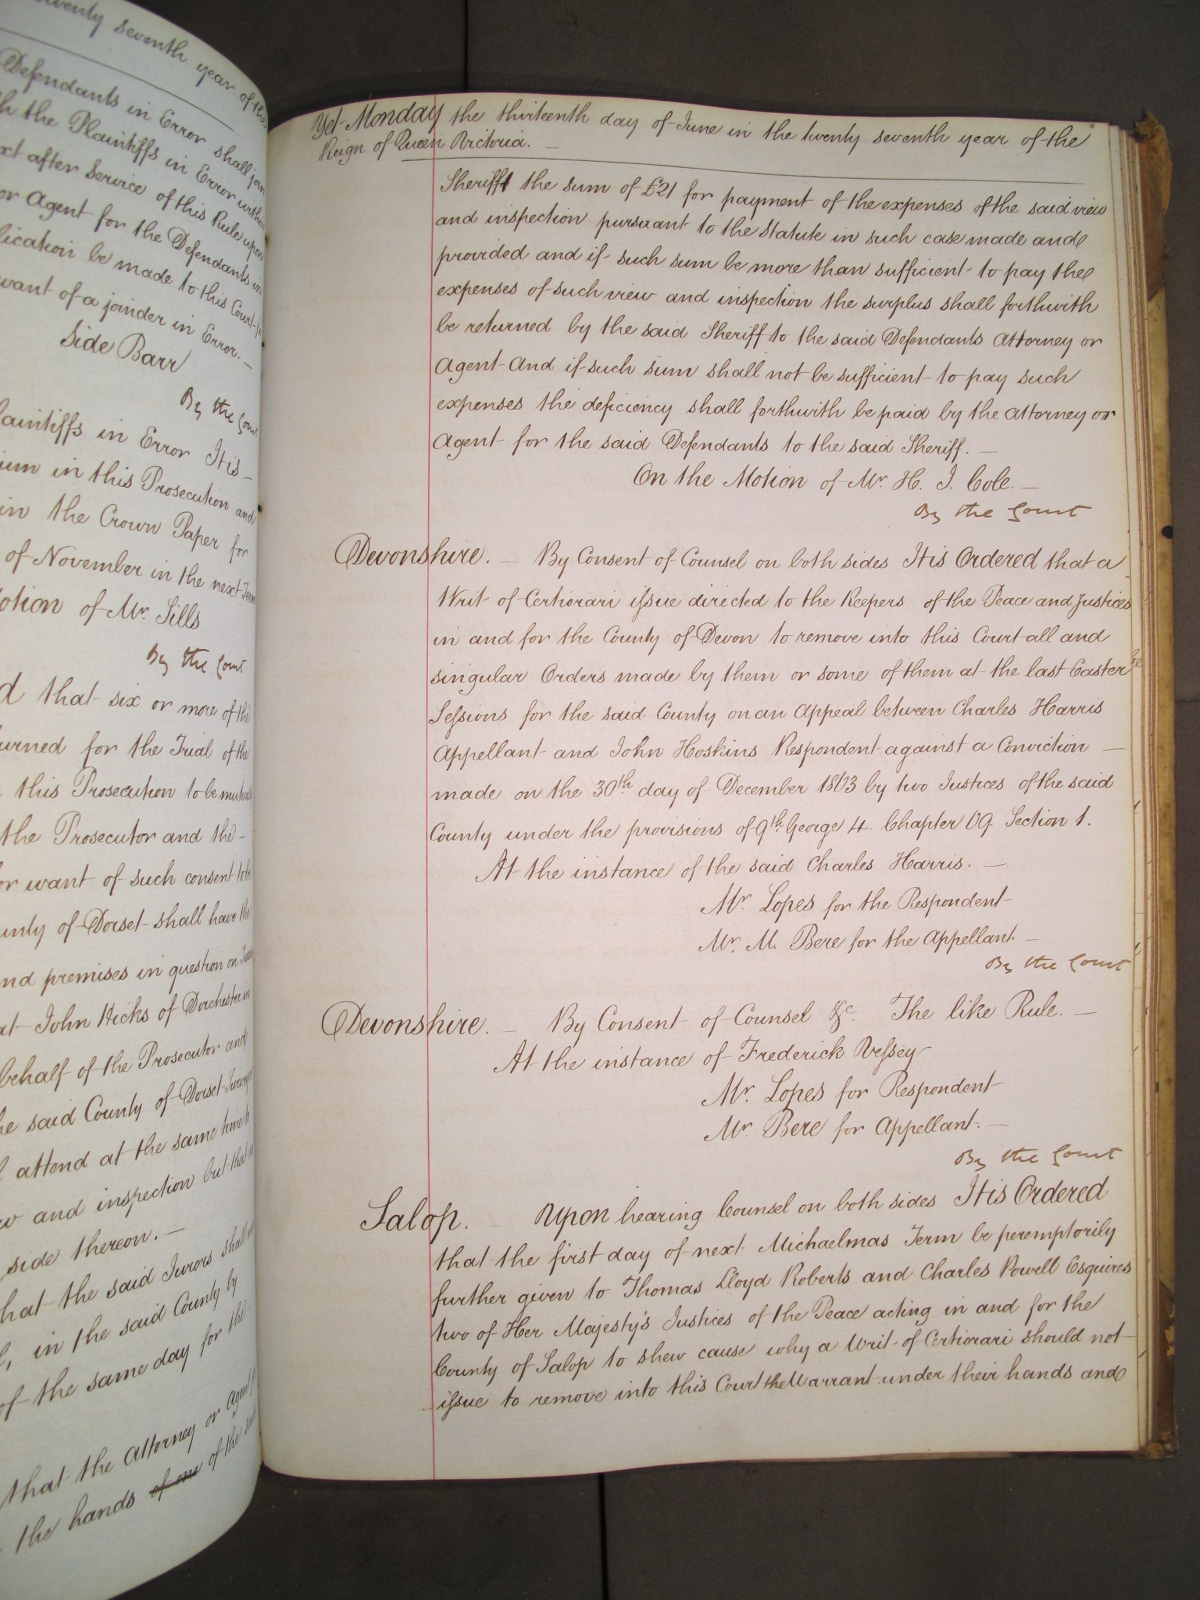 twenty seventh year of the
Defendants in Error shall join
the Plaintiffs in Error within
after Service of this Rule upon
or Agent for the Defendants in
be made to this Court
want of a joinder in Error. —
Side Barr
By the Court
Plaintiffs in Error It is —
in this Prosecution and
in the Crown Paper for
of November in the next Term
Motion of Mr. Sills
By the Court
that six or more of the
for the Trial of the
this Prosecution to be
the Prosecutor and the —
or want of such consent to be
County of Dorset shall have the
and premises in question on
John Hicks of Dorchester
behalf of the Prosecutor and
the said County of Dorset
attend at the same
and inspection but that
side thereon. —
that the said Jurors shall
in the said County by
of the same day for the
that the Attorney or Agent
the hands of one of the said
Yet Monday the thirteenth day of June in the twenty seventh year of the
Reign of Queen Victoria. —
Sheriff the sum of £21 for payment of the expenses of the said view
and inspection pursuant to the Statute in such case made and
provided and if such sum be more than sufficient to pay the
expenses of such view and inspection the surplus shall forthwith
be returned by the said Sheriff to the said Defendants Attorney or
Agent And if such sum shall not be sufficient to pay such
expenses the deficiency shall forthwith be paid by the Attorney or
Agent for the said Defendants to the said Sheriff. —
On the Motion of Mr. H. J. Cole. —
By the Court
Devonshire. — By Consent of Counsel on both sides It is Ordered that a
Writ of Certiorari issue directed to the Keepers of the Peace and Justices
in and for the County of Devon to remove into this Court all and
singular Orders made by them or some of them at the last Easter
Sessions for the said County on an Appeal between Charles Harris
Appellant and John Hoskins Respondent against a Conviction —
made on the 30th day of December 1863 by two Justices of the said
County under the provisions of 9th George 4. Chapter 69 Section 1.
At the instance of the said Charles Harris. —
Mr. Lopes for the Respondent
Mr. M. Bere for the Appellant —
By the Court
Devonshire. — By Consent of Counsel &c. The like Rule. —
At the instance of Frederick Vessey
Mr. Lopes for Respondent
Mr. Bere for Appellant. —
By the Court
Salop. — Upon hearing Counsel on both sides It is Ordered
that the first day of next Michaelmas Term be peremptorily
further given to Thomas Lloyd Roberts and Charles Powell Esquires
two of Her Majesty's Justices of the Peace acting in and for the
County of Salop to shew cause why a Writ of Certiorari should not
issue to remove into this Court the Warrant under their hands and